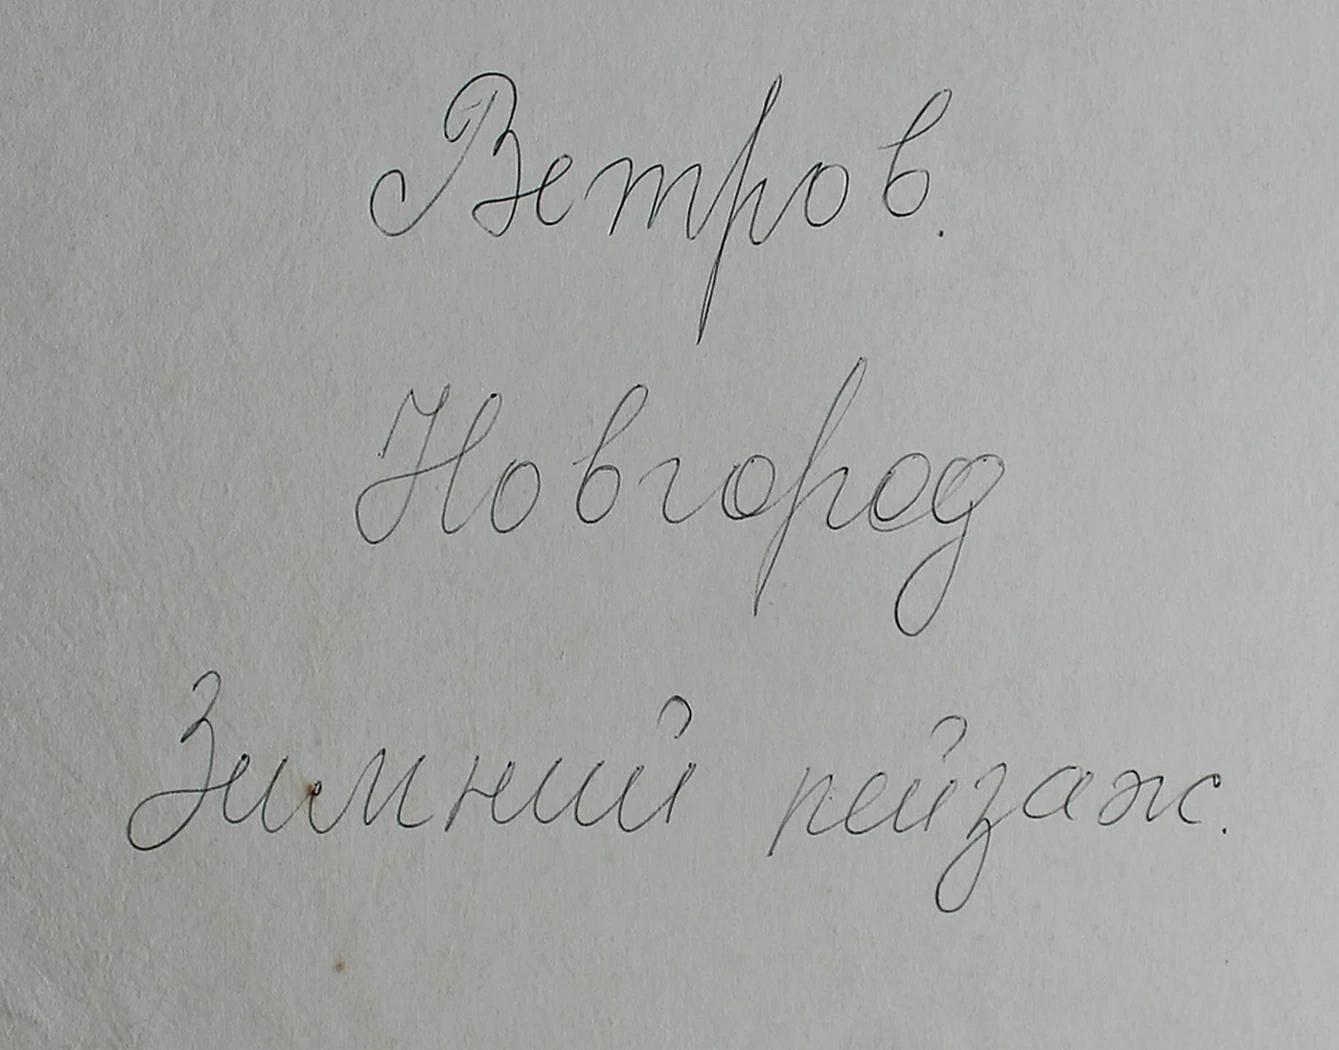 Ветров.
Новгород
Зимний пейзаж.